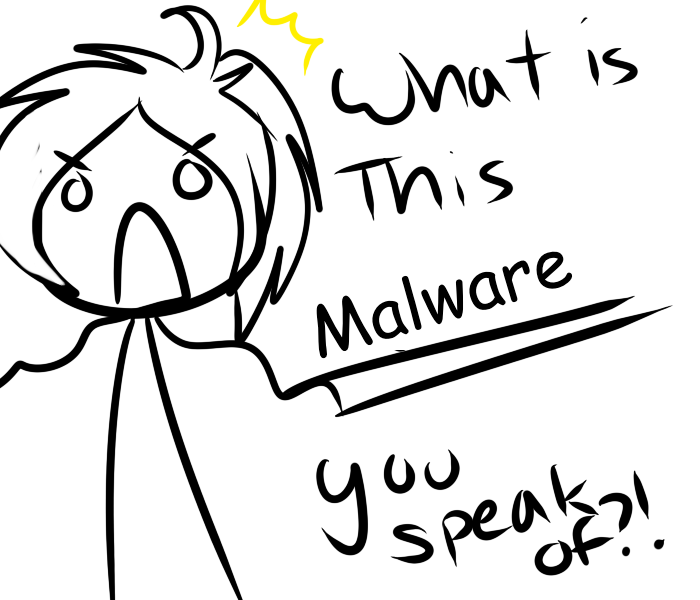 What is
This
Malware
you
speak
of?!